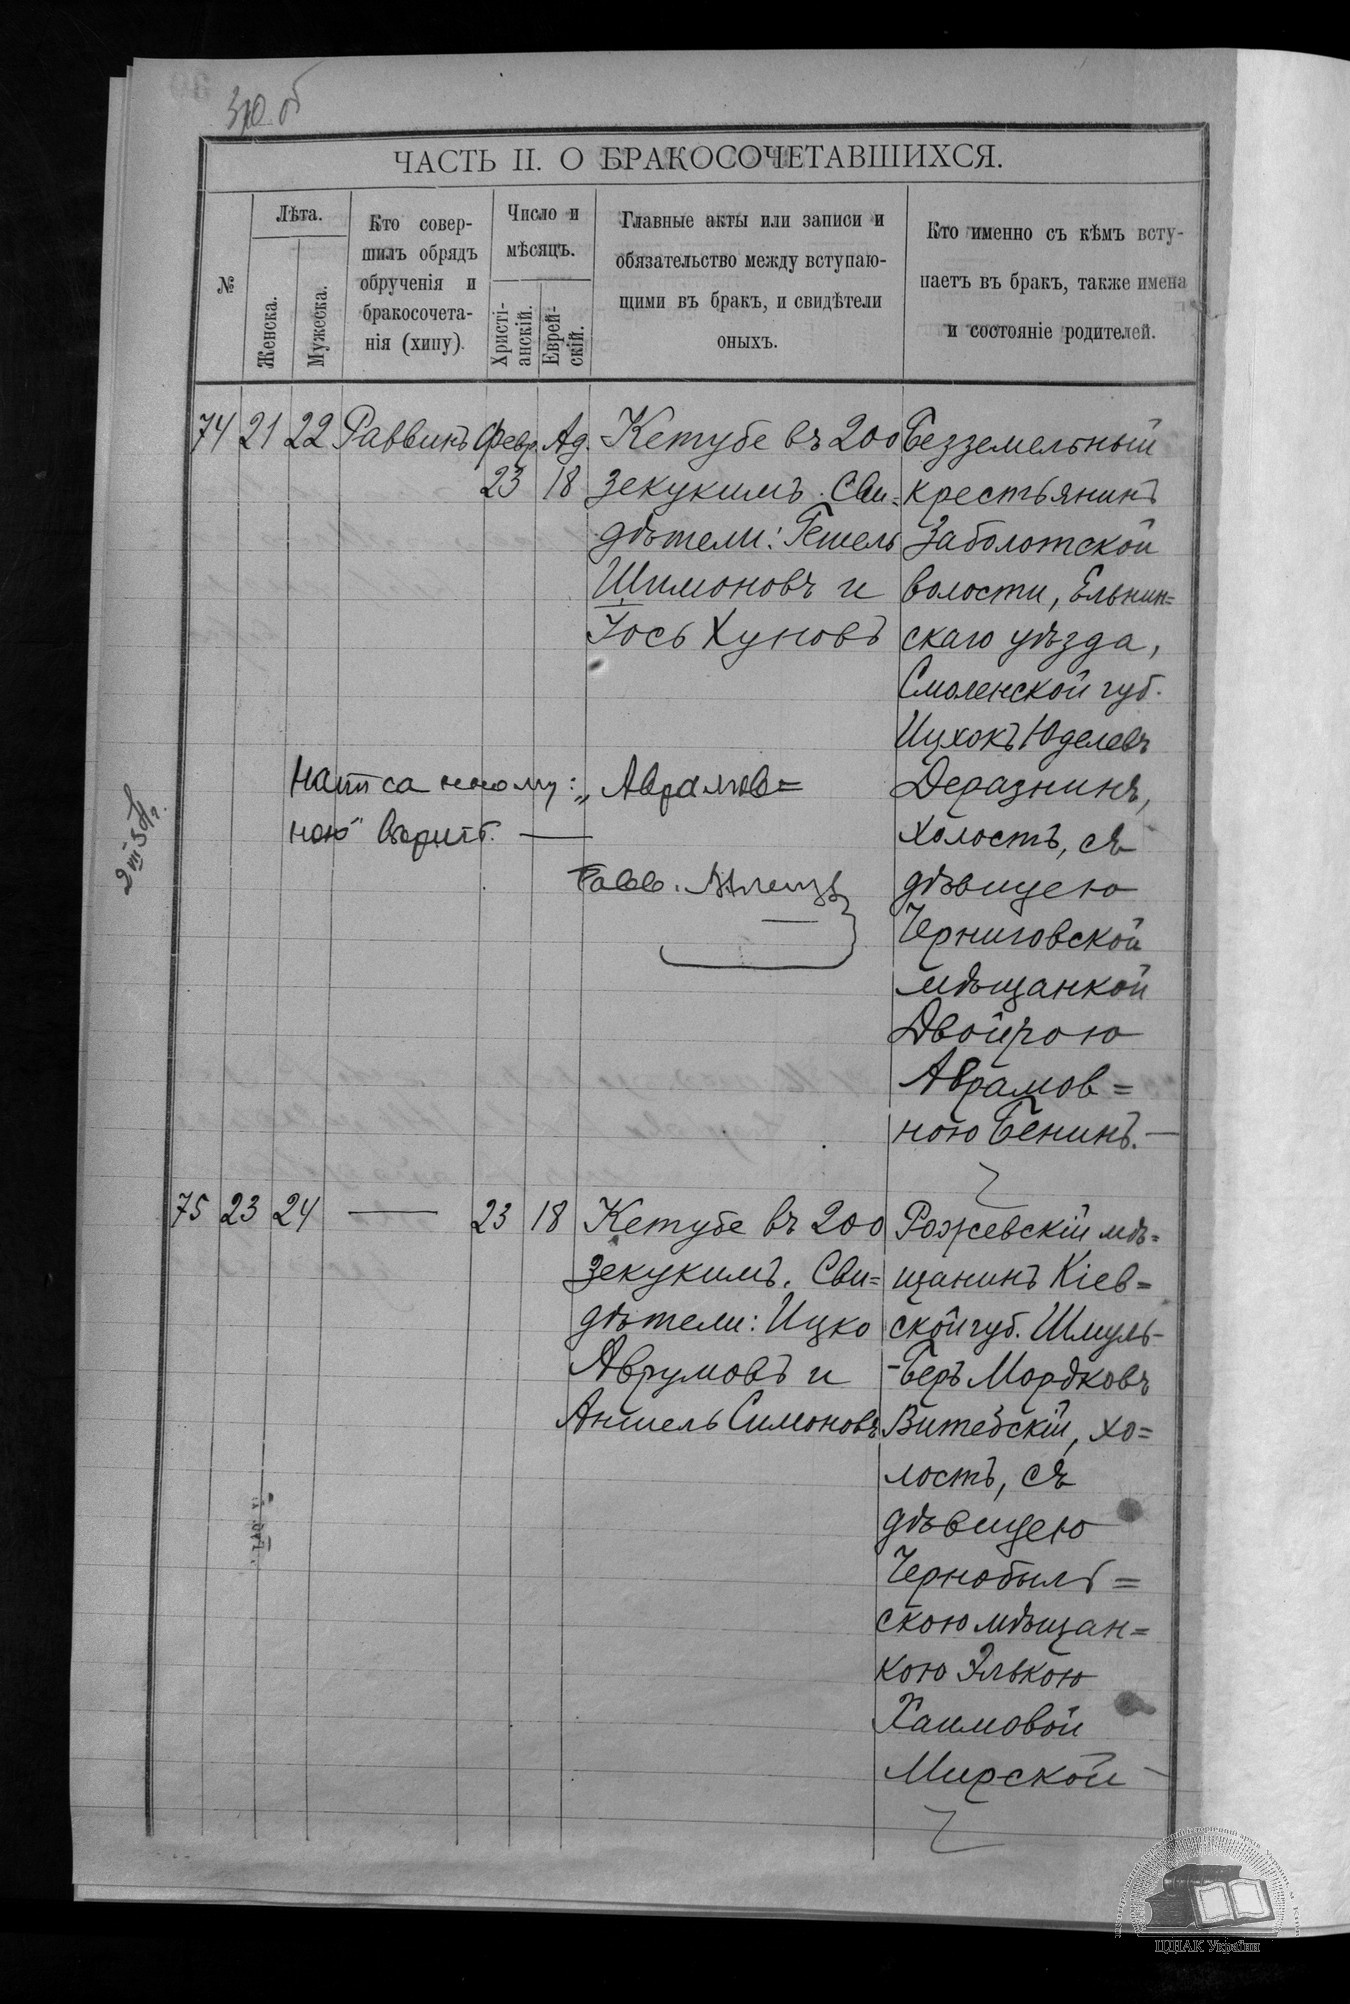 ЧАСТЬ II. О БРАКОСОЧЕТАВШИХСЯ.
№
Лѣта.
Женска.
Мужеска.
Кто совер-
шилъ обрядъ
обрученія и
бракосочета-
нія (хипу).
Число и
мѣсяцъ.
Христі-
анскій.
Еврей-
скій.
Главные акты или записи и
обязательство между вступаю-
щими въ бракъ, и свидѣтели
оныхъ.
Кто именно съ кѣмъ всту-
паетъ въ бракъ, также имена
и состояніе родителей.
74 21 22 Раввинъ Февр. Ад.
23 18
Кетубе въ 200
зекукимъ. Сви=
дѣтели: Гешель
Шимоновъ и
Іось Хуновъ
Безземельный
крестьянинъ
Заболотской
волости, Ельнин=
скаго уѣзда,
Смоленской губ.
Ицхокъ Юделевъ
Деразнинъ,
холостъ, съ
дѣвицею
Черниговской
мѣщанкой
Двойрою
Аврамов=
ною Бенинъ.
Написанному: „Аврамов=
ною" вѣрить.
Равв.
75 23 24 — 23 18
Кетубе въ 200
зекукимъ. Сви=
дѣтели: Ицко
Аврумовъ и
Аншель Симоновъ
Рожевскій мѣ=
щанинъ Кіев=
ской губ. Шмуль-
-Беръ Мордковъ
Витебскій, хо=
лостъ, съ
дѣвицею
Чернобыль=
скою мѣщан=
кою Элькою
Хаимовой
Мирской
ЦДІАК України